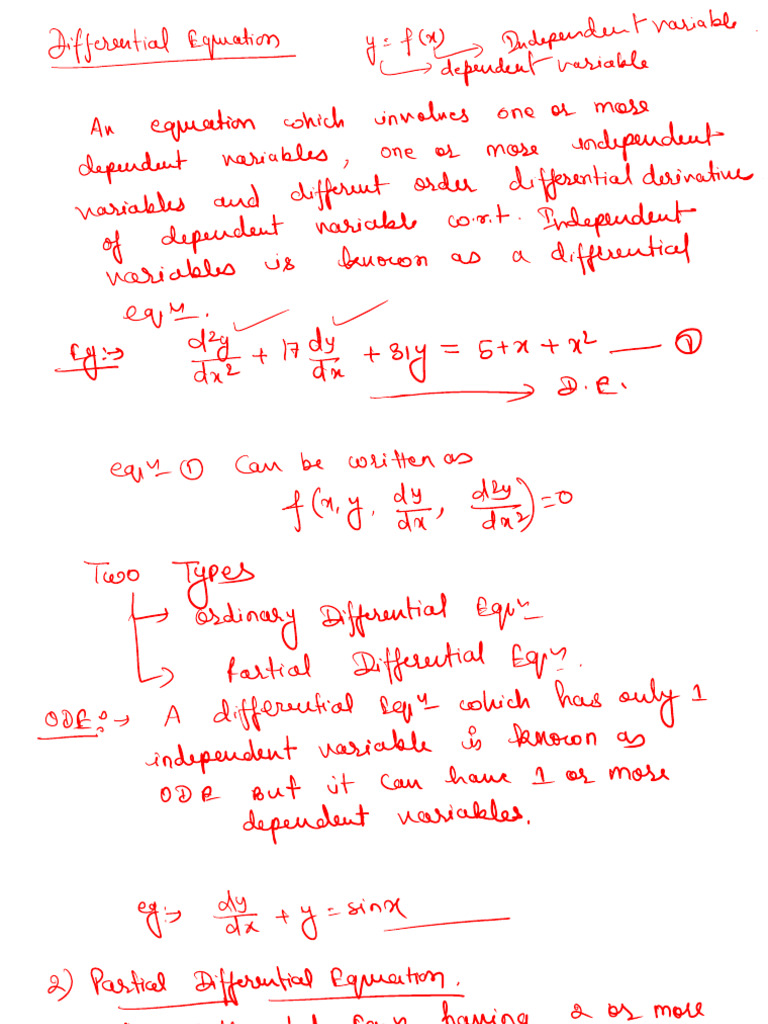 Differential Equation
y = f(x) → Independent variable
→ dependent variable
An equation which involves one or more
dependent variables, one or more independent
variables and different order differential derivative
of dependent variable w.r.t. Independent
variables is known as a differential
eqn.
Eg:→ d²y/dx² + 17 dy/dx + 31y = 5+x+x² — ①
→ D.E.
eqn ① Can be written as
f(x, y, dy/dx, d²y/dx²)=0
Two Types
→ Ordinary Differential Eqn
→ Partial Differential Eqn.
ODE:→ A differential Eqn which has only 1
independent variable is known as
ODE But it can have 1 or more
dependent variables.
eg:→ dy/dx + y = sinx
2) Partial Differential Equation.
having 2 or more